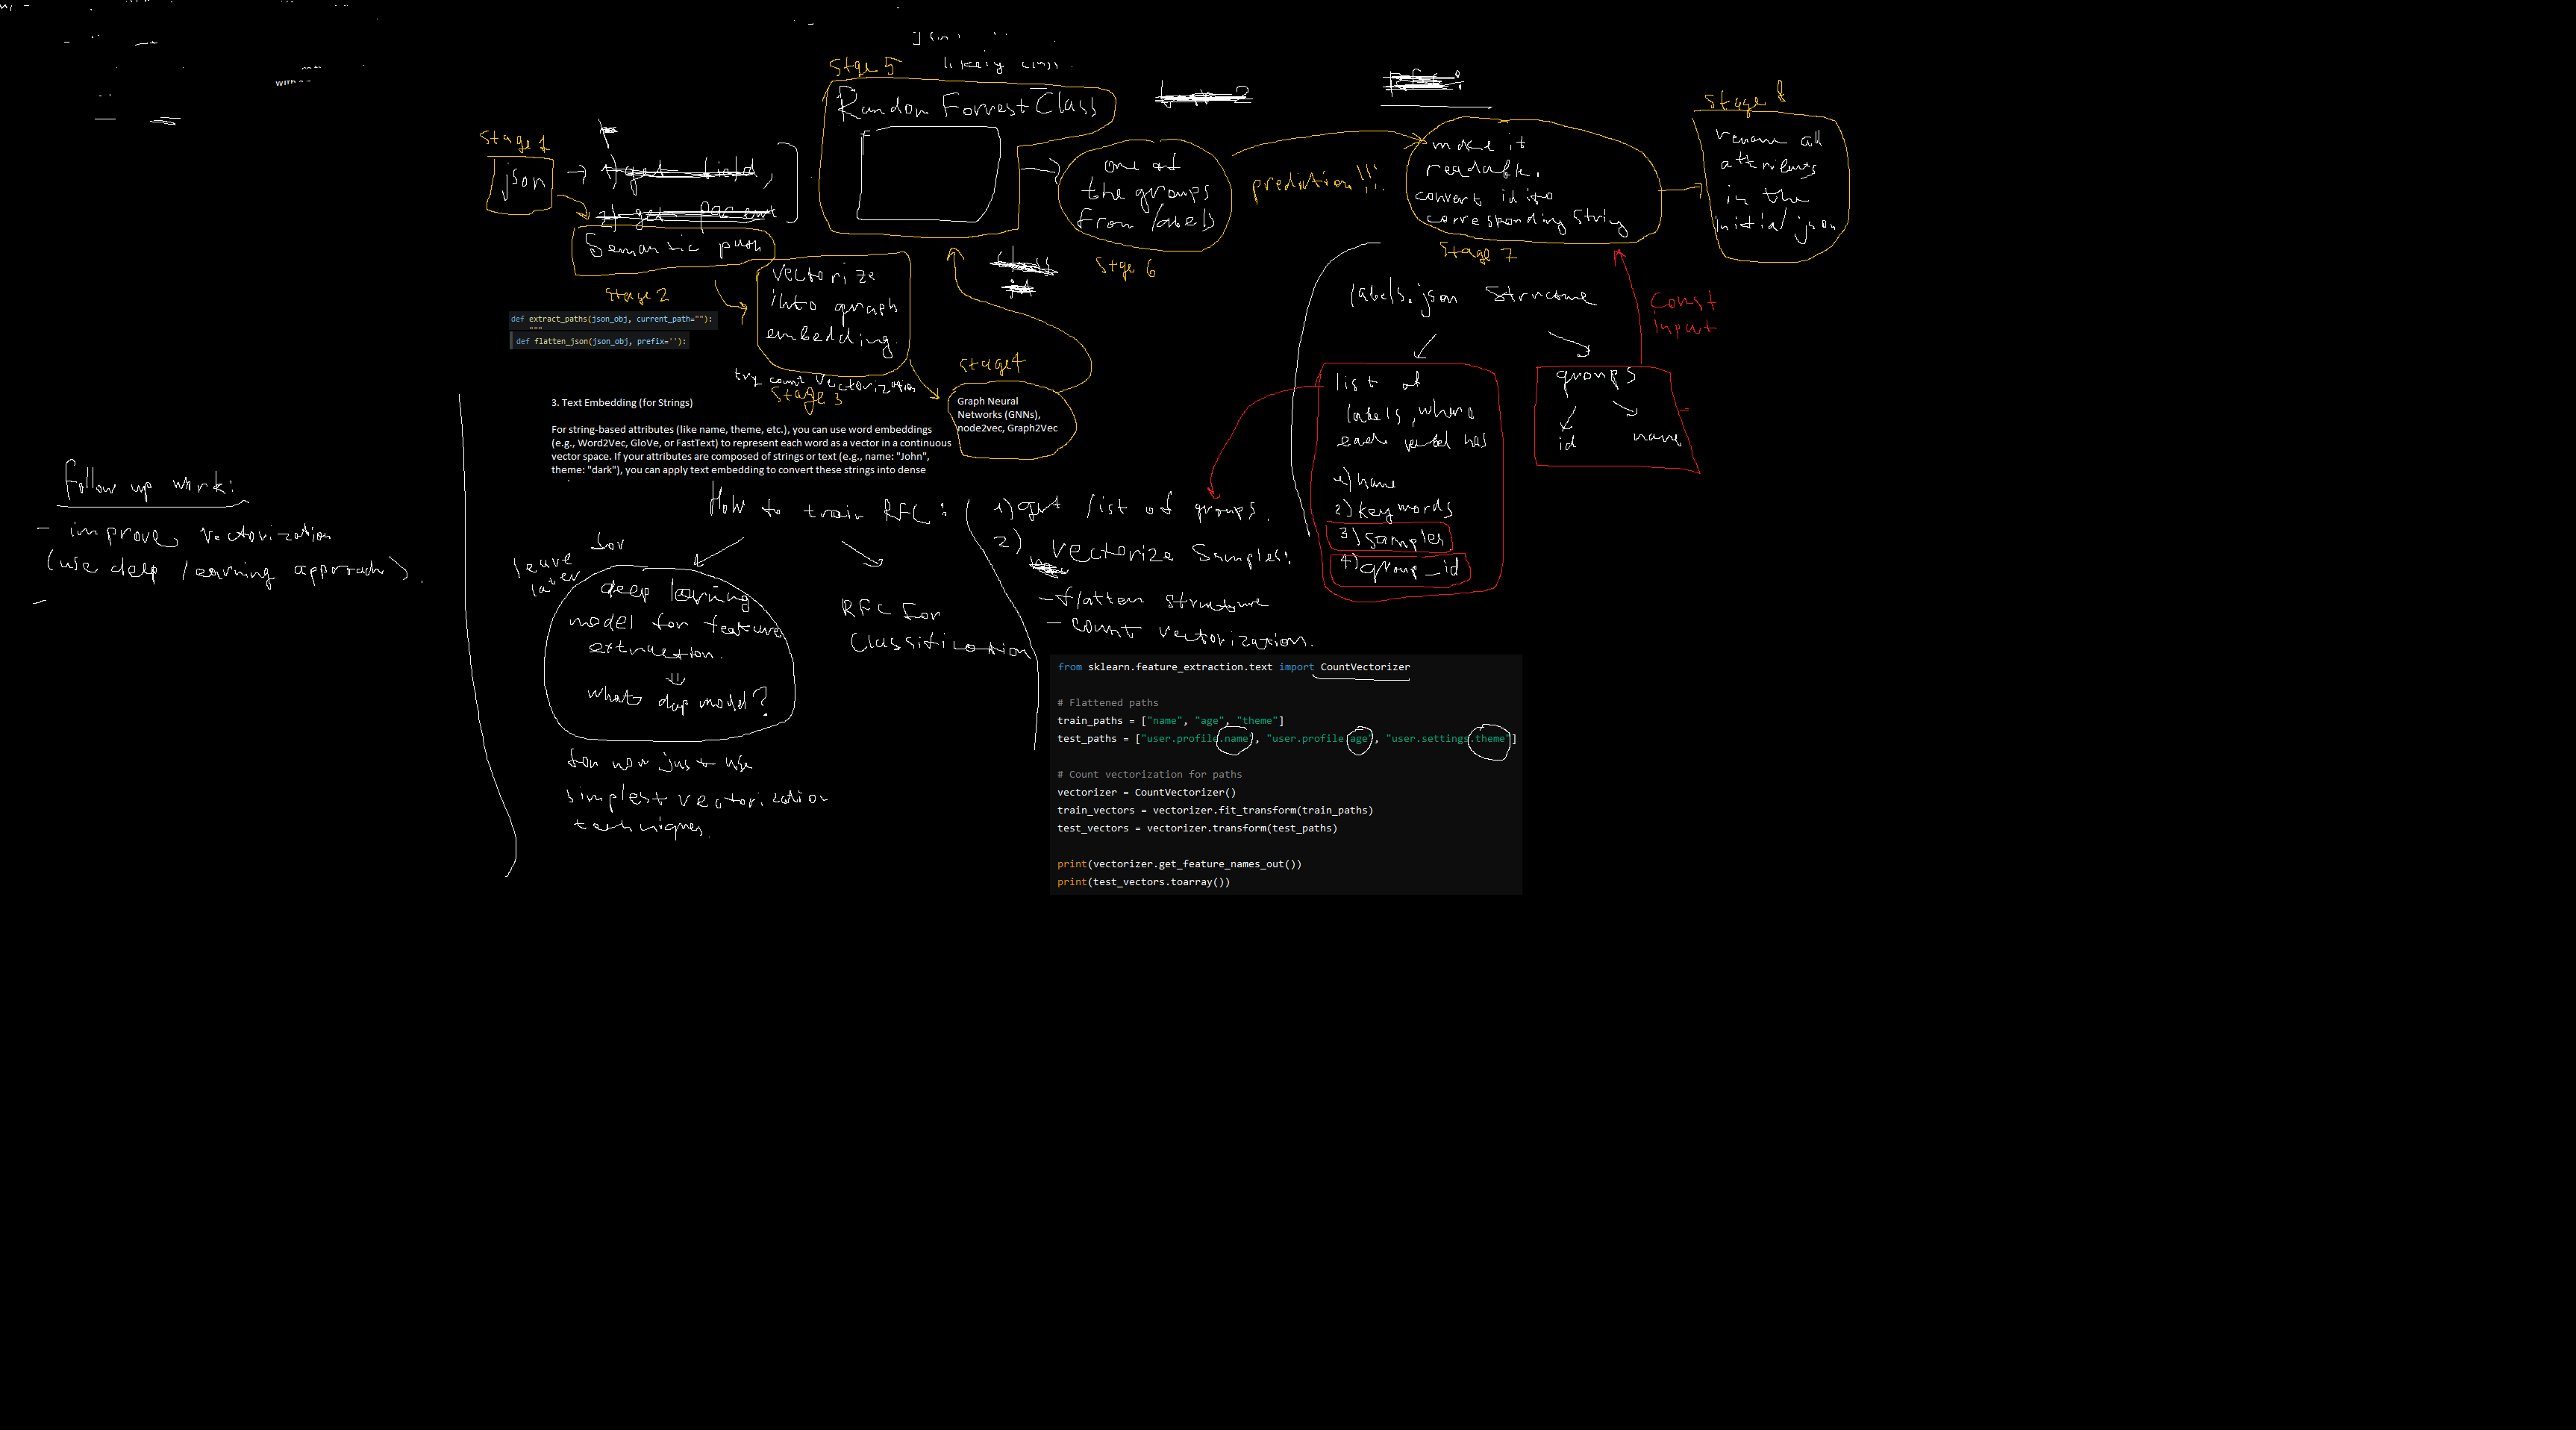 likely class.
Stge 5
Random Forrest Class
Stage 1
json
1) get field,
2) get parent
Semantic path
Stage 2
def extract_paths(json_obj, current_path=""):
"""
def flatten_json(json_obj, prefix=''):
vectorize
into graph
embedding.
try count vectorization
Stage 3
Stage 4
Graph Neural
Networks (GNNs),
node2vec, Graph2Vec
one of
the groups
from labels
Stge 6
prediction!!!
make it
readable.
convert id into
corresponding string
Stage 7
Stage 8
rename all
attributs
in the
initial json
labels.json structure
const
input
list of
labels, where
each label has
1) name
2) keywords
3) samples
4) group_id
groups
id
name
3. Text Embedding (for Strings)
For string-based attributes (like name, theme, etc.), you can use word embeddings
(e.g., Word2Vec, GloVe, or FastText) to represent each word as a vector in a continuous
vector space. If your attributes are composed of strings or text (e.g., name: "John",
theme: "dark"), you can apply text embedding to convert these strings into dense
Follow up work:
- improve vectorization
(use deep learning approach).
-
How to train RFC:
leave for
later
deep learning
model for feature
extraction.
what dep model?
for now just use
simplest vectorization
techniques.
RFC For
Classification
1) get list of groups.
2) Vectorize samples:
- flatten structure
- count vectorization.
from sklearn.feature_extraction.text import CountVectorizer
# Flattened paths
train_paths = ["name", "age", "theme"]
test_paths = ["user.profile.name", "user.profile.age", "user.settings.theme"]
# Count vectorization for paths
vectorizer = CountVectorizer()
train_vectors = vectorizer.fit_transform(train_paths)
test_vectors = vectorizer.transform(test_paths)
print(vectorizer.get_feature_names_out())
print(test_vectors.toarray())